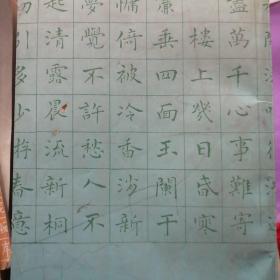 盡萬千心事難寄
樓上幾日春寒
簾垂四面玉闌干
慵倚被冷香消新
夢覺不許愁人不
起清露晨流新桐
初引多少游春意